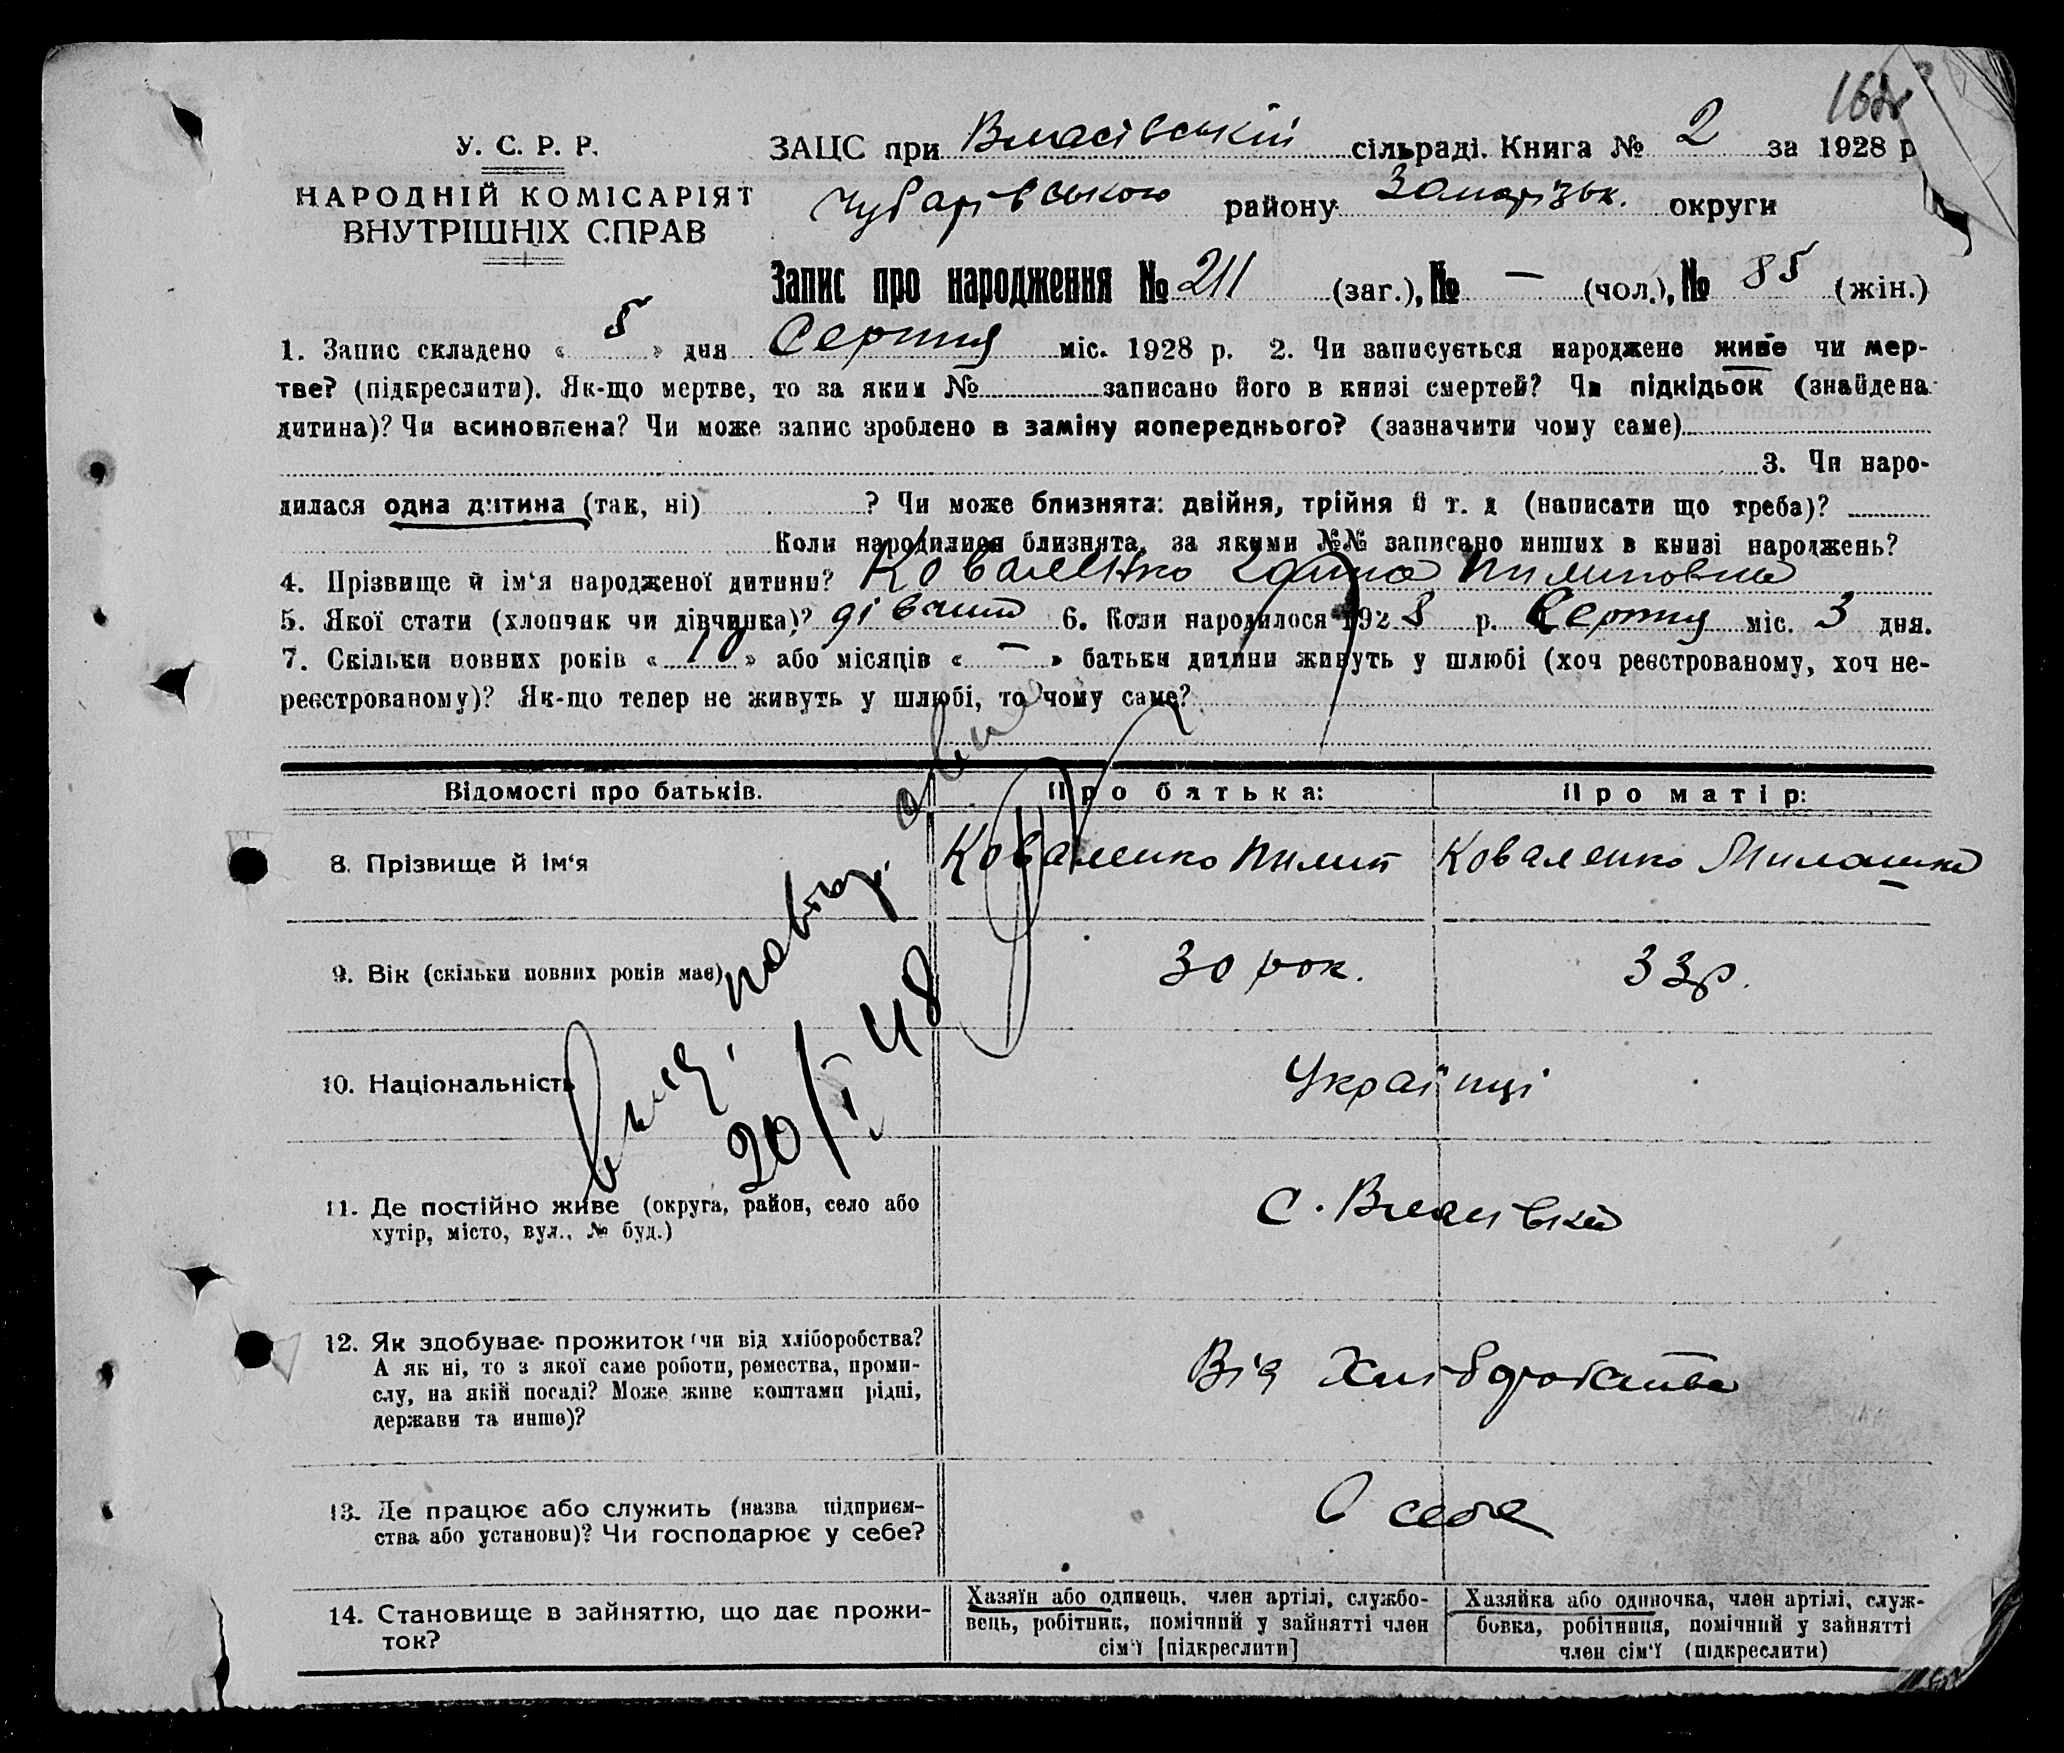 У. С. Р. Р.
НАРОДНІЙ КОМІСАРІЯТ
ВНУТРІШНІХ СПРАВ
ЗАЦС при Власівській сільраді. Книга № 2 за 1928 р
Чубарівського району Запорізьк. округи
Запис про народження № 211 (заг.), № — (чол.), № 85 (жін.)
1. Запис складено « 5 » дня Серпня міс. 1928 р. 2. Чи записується народжене живе чи мер-
тве? (підкреслити). Як-що мертве, то за яким № записано його в книзі смертей? Чи підкідьок (знайдена
дитина)? Чи всиновлена? Чи може запис зроблено в заміну попереднього? (зазначити чому саме)
3. Чи наро-
дилася одна дитина (так, ні) ? Чи може близнята: двійня, трійня й т. д (написати що треба)?
Коли народилися близнята, за якими №№ записано инших в книзі народжень?
4. Прізвище й ім‘я народженої дитини? Коваленко Пилиповна
5. Якої стати (хлопчик чи дівчинка)? дівчина 6. Коли народилося 1928 р. Серпня міс. 3 дня.
7. Скільки повних років « 10 » або місяців « — » батьки дитини живуть у шлюбі (хоч реєстрованому, хоч не-
реєстрованому)? Як-що тепер не живуть у шлюбі, то чому саме?
Відомості про батьків.
Про батька:
Про матір:
8. Прізвище й ім‘я
Коваленко Пилип
Коваленко Милашка
9. Вік (скільки повних років має)
30 рок.
33 р.
10. Національність
Українці
20/I 48
11. Де постійно живе (округа, район, село або
хутір, місто, вул., № буд.)
с. Власівка
12. Як здобуває прожиток (чи від хліборобства?
А як ні, то з якої саме роботи, ремества, проми-
слу, на якій посаді? Може живе коштами рідні,
держави та инше)?
Від Хліборобства
13. Де працює або служить (назва підприєм-
ства або установи)? Чи господарює у себе?
У себе
14. Становище в зайняттю, що дає прожи-
ток?
Хазяїн або одинець, член артілі, службо-
вець, робітник, помічний у зайнятті член
сім‘ї [підкреслити]
Хазяйка або одиночка, член артілі, служ-
бовка, робітниця, помічний у зайнятті
член сім‘ї (підкреслити)